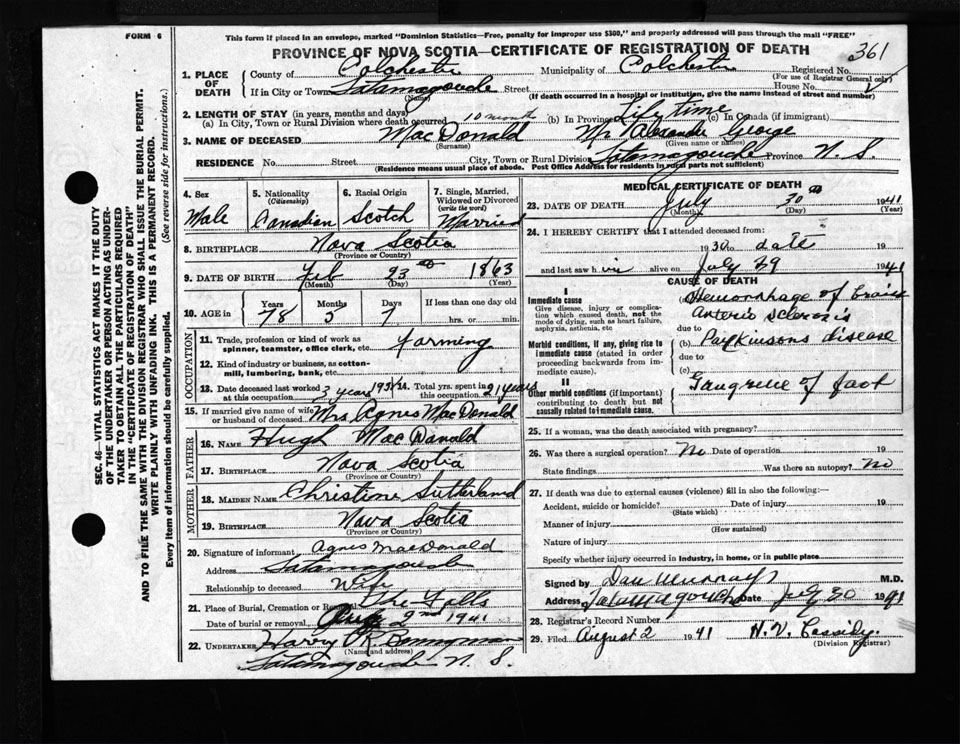 FORM 6
This form if placed in an envelope, marked "Dominion Statistics—Free, penalty for improper use $300," and properly addressed will pass through the mail "FREE"
PROVINCE OF NOVA SCOTIA—CERTIFICATE OF REGISTRATION OF DEATH
361
1. PLACE OF DEATH County of Colchester Municipality of Colchester Registered No.
(For use of Registrar General only)
If in City or Town Tatamagouche Street House No.
(Name) (If death occurred in a hospital or institution, give the name instead of street and number)
2. LENGTH OF STAY (in years, months and days)
(a) In City, Town or Rural Division where death occurred 10 month (b) In Province Lifetime (c) In Canada (if immigrant)
3. NAME OF DECEASED MacDonald Mr Alexander George
(Surname) (Given name or names)
RESIDENCE No. Street City, Town or Rural Division Tatamagouche Province N. S.
(Residence means usual place of abode. Post Office Address for residents in rural parts not sufficient)
4. Sex Male
5. Nationality (Citizenship) Canadian
6. Racial Origin Scotch
7. Single, Married, Widowed or Divorced (write the word) Married
8. BIRTHPLACE Nova Scotia
(Province or Country)
9. DATE OF BIRTH Feb 23 1863
(Month) (Day) (Year)
10. AGE in Years Months Days If less than one day old
78 5 7 hrs. or min.
OCCUPATION
11. Trade, profession or kind of work as spinner, teamster, office clerk, etc. farming
12. Kind of industry or business, as cotton-mill, lumbering, bank, etc.
13. Date deceased last worked at this occupation 3 years 193 14. Total yrs. spent in this occupation years
15. If married give name of wife or husband of deceased Mrs Agnes MacDonald
FATHER
16. NAME Hugh MacDonald
17. BIRTHPLACE Nova Scotia
(Province or Country)
MOTHER
18. MAIDEN NAME Christine Sutherland
19. BIRTHPLACE Nova Scotia
(Province or Country)
20. Signature of informant Agnes MacDonald
Address Tatamagouche
Relationship to deceased Wife
21. Place of Burial, Cremation or Removal The Falls
Date of burial or removal Aug 2nd 1941
22. UNDERTAKER Harvey
(Name and address)
Tatamagouche N. S.
MEDICAL CERTIFICATE OF DEATH
23. DATE OF DEATH July 30 1941
(Month) (Day) (Year)
24. I HEREBY CERTIFY that I attended deceased from:
1930 to date 19
and last saw him alive on July 29 1941
CAUSE OF DEATH
I
Immediate cause
Give disease, injury or complication which caused death, not the mode of dying, such as heart failure, asphyxia, asthenia, etc
(a) Hemorrhage of brain
Arterio sclerosis
due to
Morbid conditions, if any, giving rise to immediate cause (stated in order proceeding backwards from immediate cause).
(b) Parkinsons disease
due to
(c)
II
Other morbid conditions (if important) contributing to death but not causally related to immediate cause.
Gangrene of foot
25. If a woman, was the death associated with pregnancy?
26. Was there a surgical operation? No Date of operation 19
State findings Was there an autopsy? No
27. If death was due to external causes (violence) fill in also the following:—
Accident, suicide or homicide? Date of injury 19
(State which)
Manner of injury
(How sustained)
Nature of injury
Specify whether injury occurred in industry, in home, or in public place
Signed by Dan Murray M.D.
Address Tatamagouche Date July 30 1941
28. Registrar's Record Number
29. Filed August 2 1941 H.V. Cassidy
(Division Registrar)
SEC. 46—VITAL STATISTICS ACT MAKES IT THE DUTY
OF THE UNDERTAKER OR PERSON ACTING AS UNDER-
TAKER TO OBTAIN ALL THE PARTICULARS REQUIRED
IN THE "CERTIFICATE OF REGISTRATION OF DEATH"
AND TO FILE THE SAME WITH THE DIVISION REGISTRAR WHO SHALL ISSUE THE BURIAL PERMIT.
WRITE PLAINLY WITH UNFADING INK. THIS IS A PERMANENT RECORD.
Every item of Information should be carefully supplied. (See reverse side for instructions.)